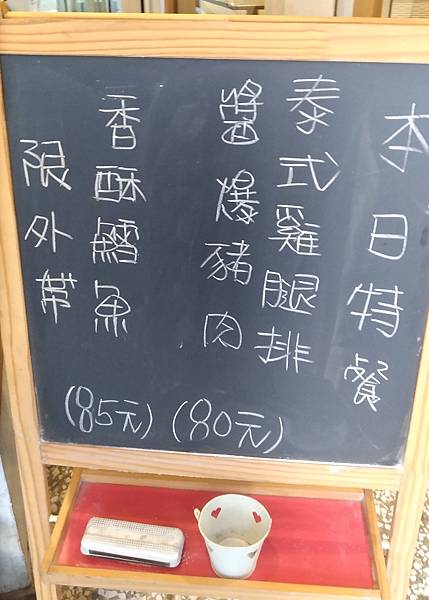 本日特餐
泰式雞腿排
醬爆豬肉
(80元)
香酥鱈魚
(85元)
限外帶